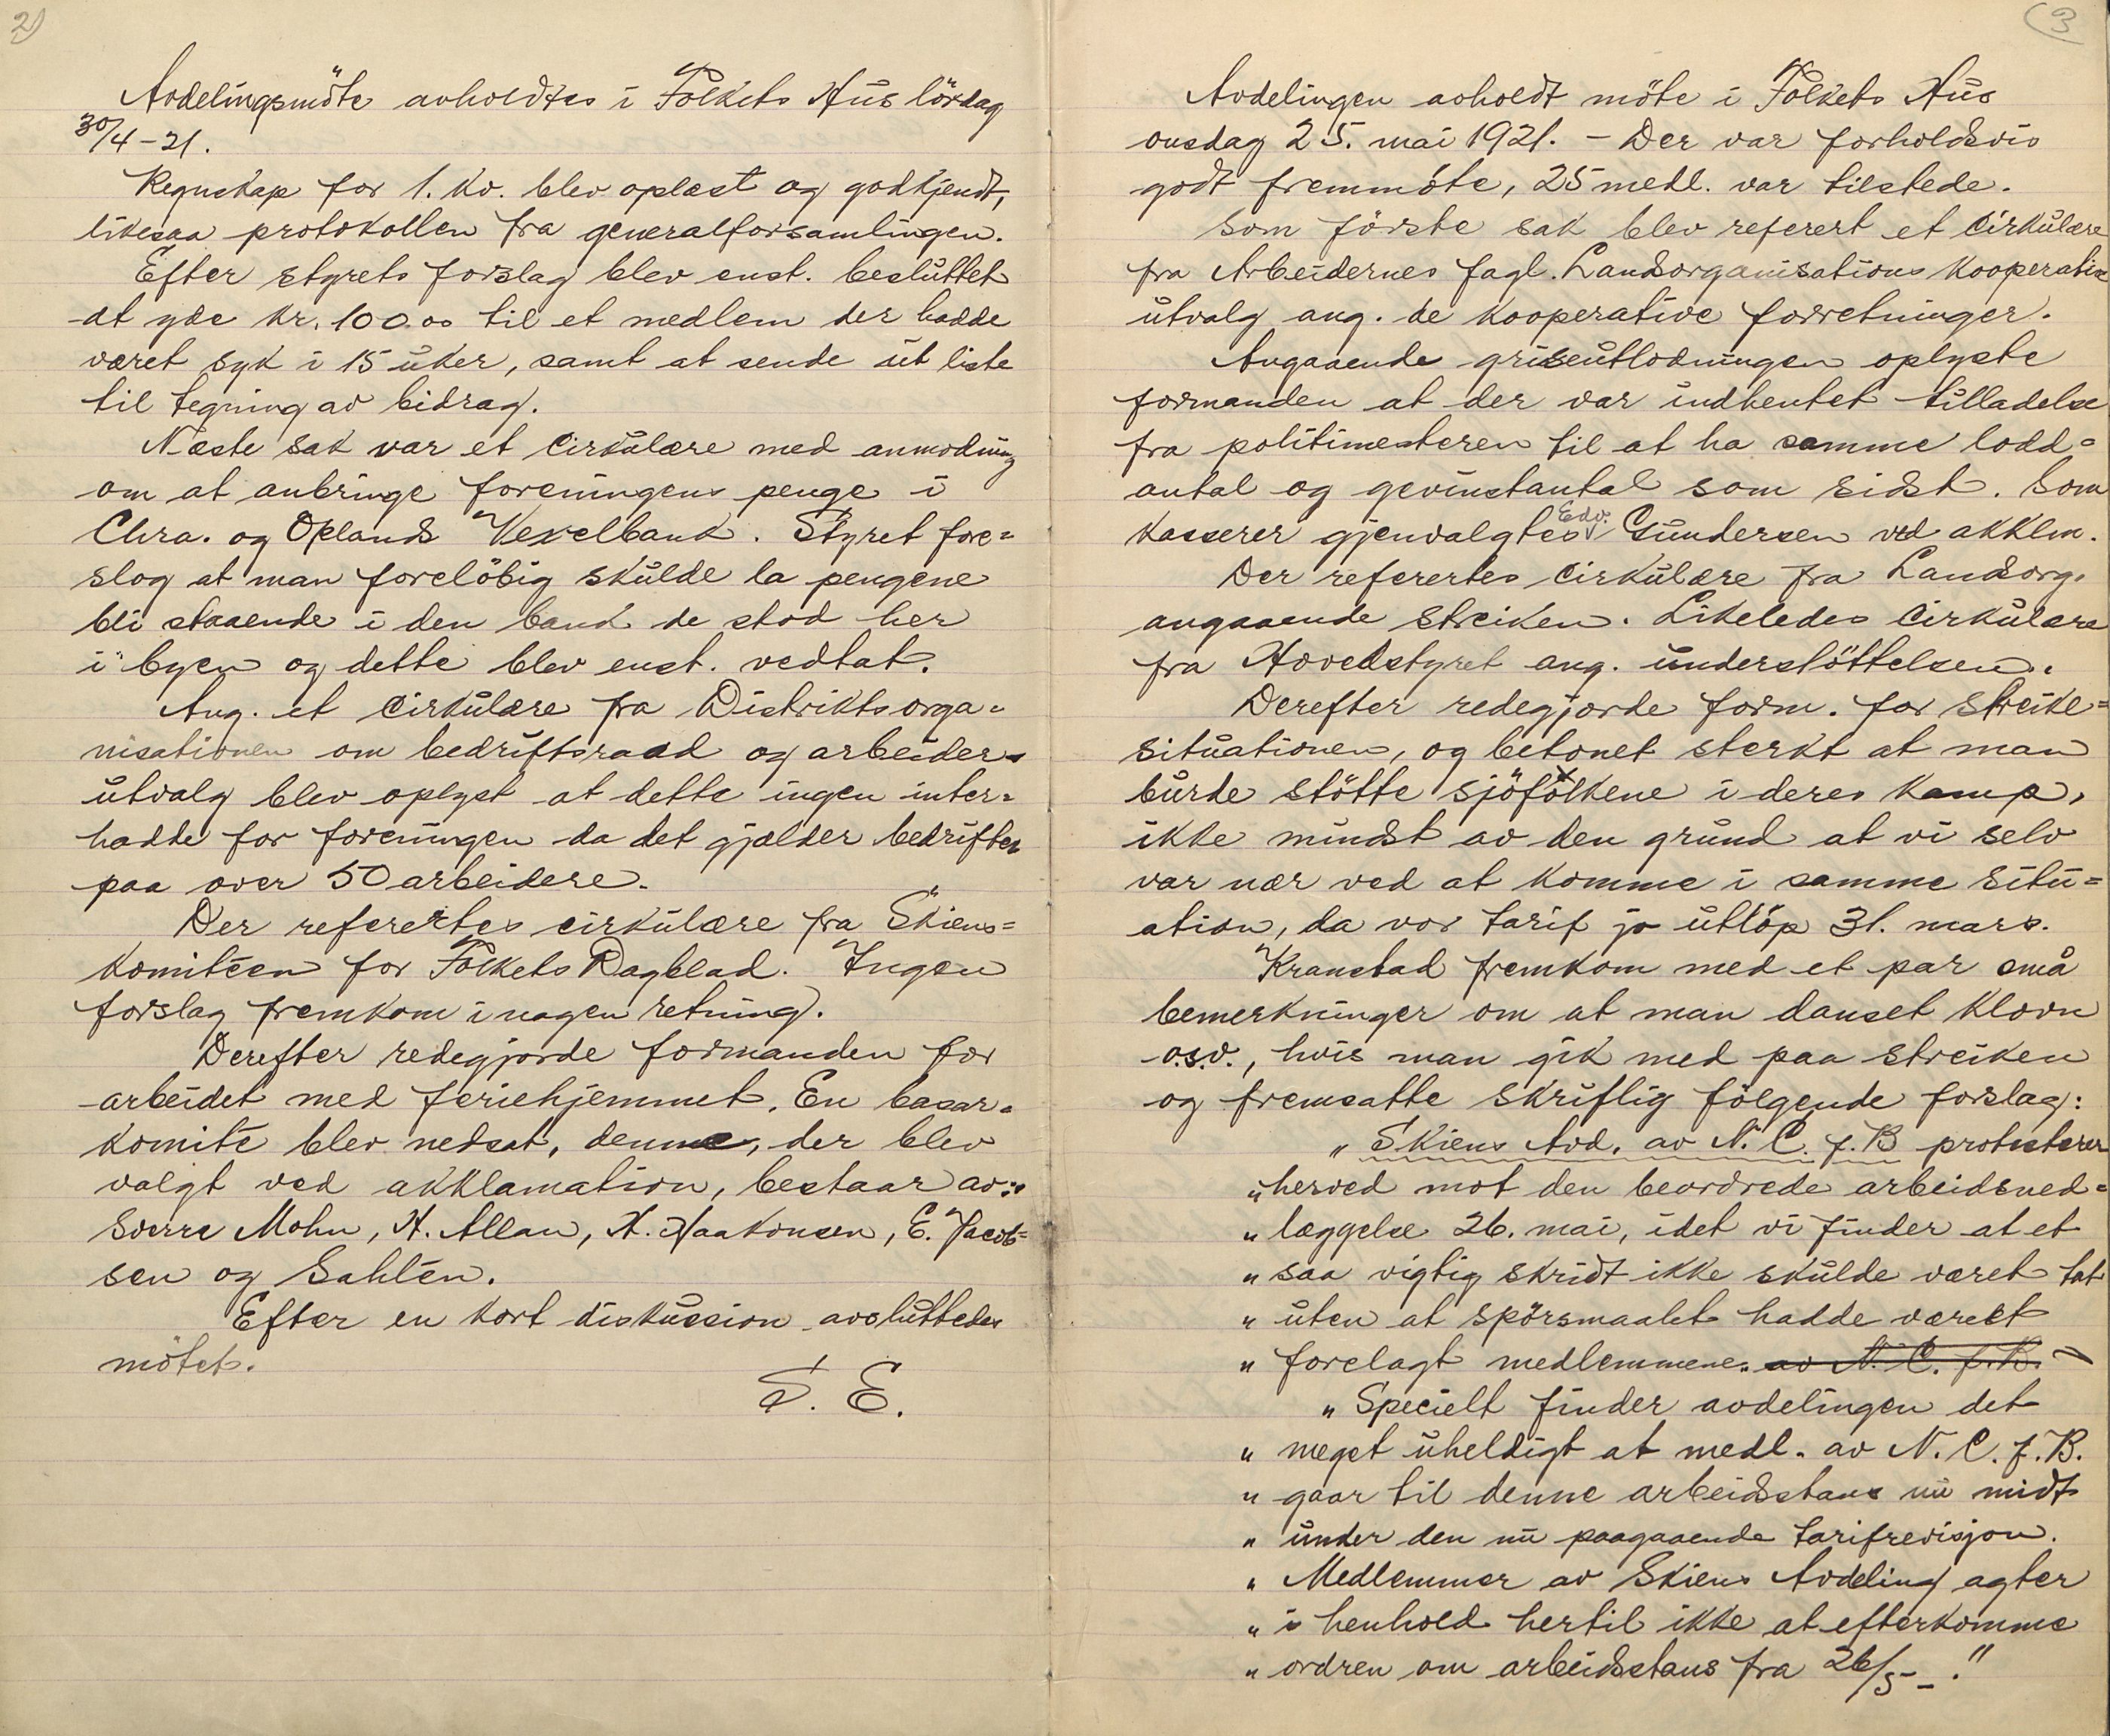 2)
Avdelingsmöte avholdtes i Folkets Hus lördag
30/4-21.
Regnskap for 1. kv. blev oplæst og godkjendt,
likesaa protokollen fra generalforsamlingen.
Efter styrets forslag blev enst. besluttet
at yde kr. 100.00 til et medlem der hadde
været syk i 15 uker, samt at sende ut liste
til tegning av bidrag.
Næste sak var et cirkulære med anmodning
om at anbringe foreningens penge i
Chra. og Oplands Vexelbank. Styret fore=
slog at man forelöbig skulde la pengene
bli staaende i den bank de stod her
i byen og dette blev enst. vedtat.
Ang. et cirkulære fra Distriktsorga=
nisationen om bedriftsraad og arbeider=
utvalg blev oplyst at dette ingen inter=
hadde for foreningen da det gjælder bedrifter
paa over 50 arbeidere.
Der refereertes cirkulære fra Skiens=
komitéen for Folkets Dagblad. Ingen
forslag fremkom i nogen retning.
Derefter redegjorde formanden for
arbeidet med feriehjemmet. En basar=
komité blev nedsat, denne, der blev
valgt ved akklamation, bestaar av:
Sverre Mohn, H. Allan, H. Haakonsen, E. Jacob=
sen og Sahlén.
Efter en kort diskussion avsluttedes
mötet.
T. E.
3
Avdelingen avholdt möte i Folkets Hus
onsdag 25. mai 1921. - Der var forholdsvis
godt fremmöte, 25 medl. var tilstede.
Som förste sak blev referert et cirkulære
fra Arbeidernes fagl. Landsorganisations kooperative
utvalg ang. de kooperative forretninger.
Angaaende griseutlodningen oplyste
formanden at der var indhentet tilladelse
fra politimesteren til at ha samme lodd=
antal og gevinstantal som sidst. Som
kasserer gjenvalgtes Edv. Gundersen ved akklm.
Der refererters cirkulære fra Landsorg.
angaaende streiken. Likeledes cirkulære
fra Hovedstyret ang. understöttelsen.
Derefter redegjorde form. for streike=
situationen, og betonet sterkt at man
burde stötte sjöfolkene i deres kamp,
ikke mindst av den grund at vi selv
var nær ved at komme i samme situ=
ation, da vor tarif jo utlöp 31. mars.
Kranstad fremkom med et par små
bemerkninger om at man danset klovn
o.s.v., hvis man gik med paa streiken
og fremsatte skriftlig fölgende forslag:
„ Skiens Avd. av N. C. f. B protesterer
„ herved mot den beordrede arbeidsned=
„ læggelse 26. mai, idet vi finder at et
„ saa vigtig skridt ikke skulde været tat
„ uten at spörsmaalet hadde været
„ forelagt medlemmene. av N. C. f. B.
„ Specielt finder avdelingen det
„ meget uheldigt at medl. av N. C. f. B.
„ gaar til denne arbeidsstans nu midt
„ under den nu paagaaende tarifrevisjon.
„ Medlemmer av Skiens Avdeling agter
„ i henhold hertil ikke at efterkomme
„ ordren om arbeidsstans fra 26/5 - ."